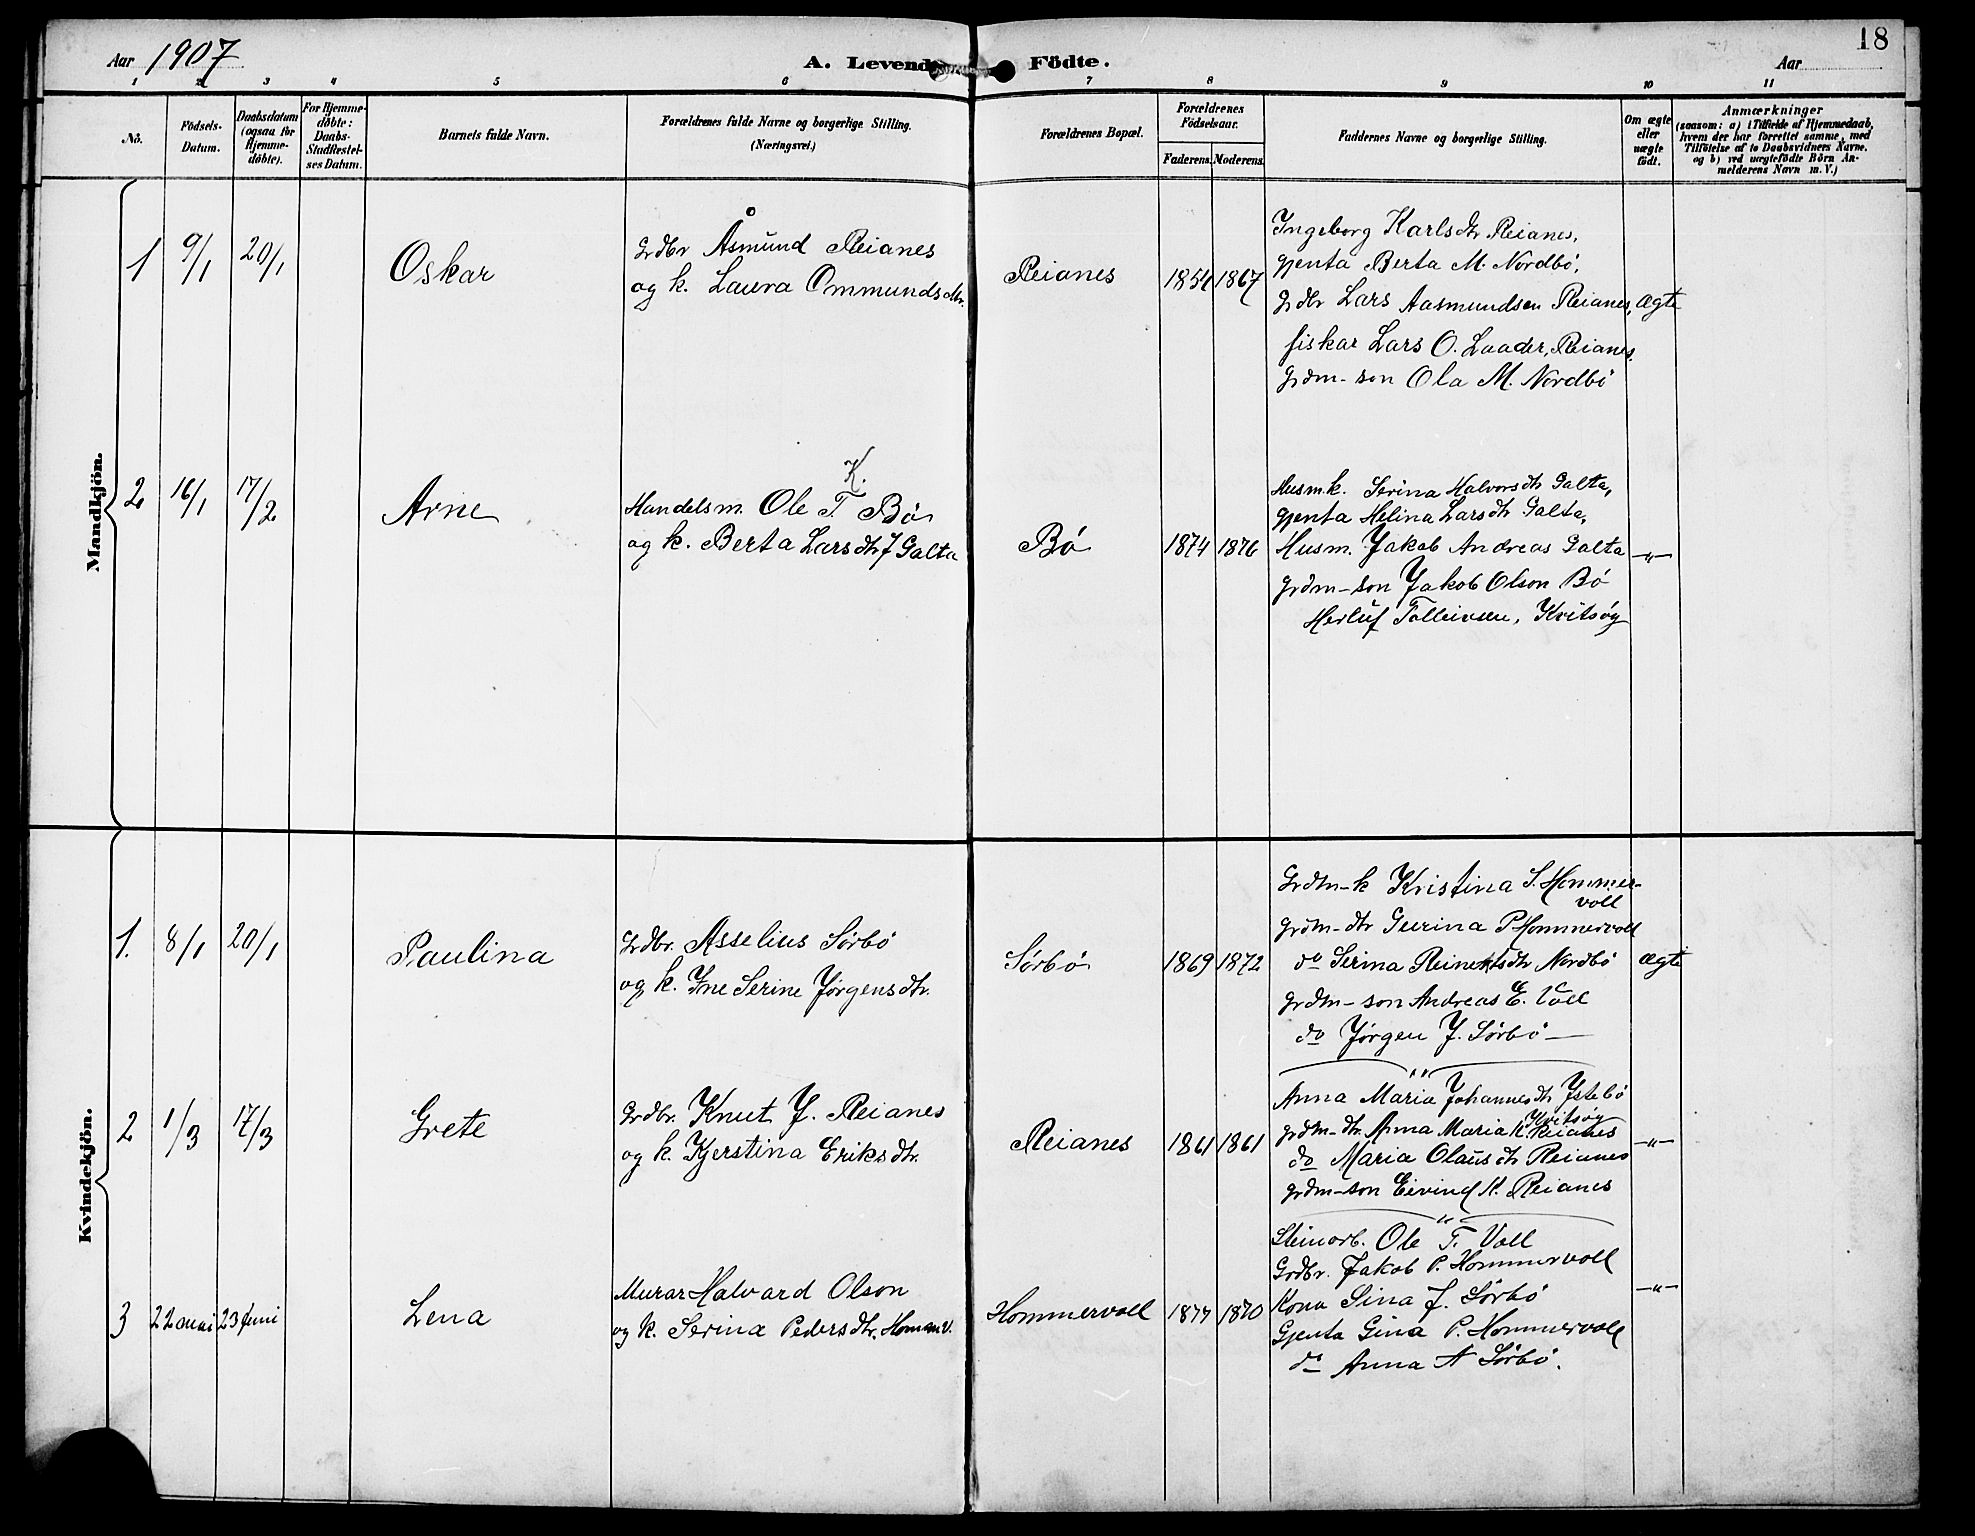 18
Aar 1907 A. Levende Födte. Aar
1 2 3 4 5 6 7 8 9 10 11
No. Födsels-Datum. Daabsdatum (ogsaa for Hjemme-döbte). For Hjemme-döbte: Daabs-Stadfæstel-ses Datum. Barnets fulde Navn. Forældrenes fulde Navne og borgerlige Stilling. (Næringsvei.) Forældrenes Bopæl. Forældrenes Födselsaar. Faderens. Moderens. Faddernes Navne og borgerlige Stilling. Om ægte eller uægte födt. Anmærkninger (saasom: a) i Tilfælde af Hjemmedaab, hvem der har forrettet samme, med Tilföielse af to Daabsvidners Navne, og b) ved uægtefödte Börn An-melderens Navn m. V.)
Mandkjön.
1 9/1 20/1 Oskar
Grdbr Åsmund Reianes
og k. Laura Ommundsdtr.
Reianes 1854 1867
Ingeborg Karlsdtr Reianes,
gjenta Berta M. Nordbø,
Grdbr Lars Aasmundsen Reianes, ægte
fiskar Lars O. Laader, Reianes.
grdm-son Ola M. Nordbø
2 16/1 17/2 Arne
K.
Handelsm. Ole T Bø
og k. Berta Larsdtr f Galta
Bø 1874 1876
Husmk. Serina Halvorsdtr Galta,
gjenta Helina Larsdtr Galta,
Husm. Jakob Andreas Galta —"—
grdm-son Jakob Olson Bø
Herluf Tolleivsen, Kvitsøy
Kvindekjön.
1. 8/1 20/1 Paulina
Grdbr. Asselius Sørbø
og k. Ine Serine Jörgensdtr.
Sørbø 1869 1872
Grdm-k Kristina S. Hommer-
voll
grdm-dtr Gurina P Hommervoll
do Serina Reinertsdtr Nordbø ægte
grdm-son Andreas E. Voll
do Jørgen J. Sørbø —
"
2 1/3 17/3 Grete
Grdbr. Knut J. Reianes
og k. Kjerstina Eriksdtr.
Reianes 1861 1861
Anna Maria Johannesdtr Ystebø
Kvitsøy
grdm-dtr. Anna Maria K. Reianes
do Maria Olausdtr Reianes —"—
grdm-son Eivind K. Reianes
"
3 22 mai 23 juni Lena
Murar Halvard Olson
og k. Serina Pedersdtr. Homm.v.
Hommervoll 1877 1870
Steinarb. Ole T. Voll
Grdbr. Jakob P. Hommervoll
Kona Sina J. Sørbø —"—
Gjenta Gina P. Hommervoll
do Anna A Sørbø.